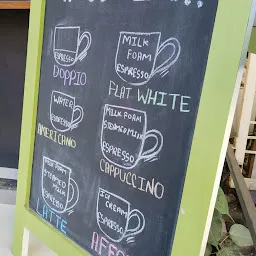 ESPRESSO
DOPPIO
MILK
FOAM
ESPRESSO
FLAT WHITE
WATER
ESPRESSO
AMERICANO
MILK FOAM
STEAMED MILK
ESPRESSO
CAPPUCCINO
MILK FOAM
STEAMED
MILK
ESPRESSO
LATTE
ICE
CREAM
ESPRESSO